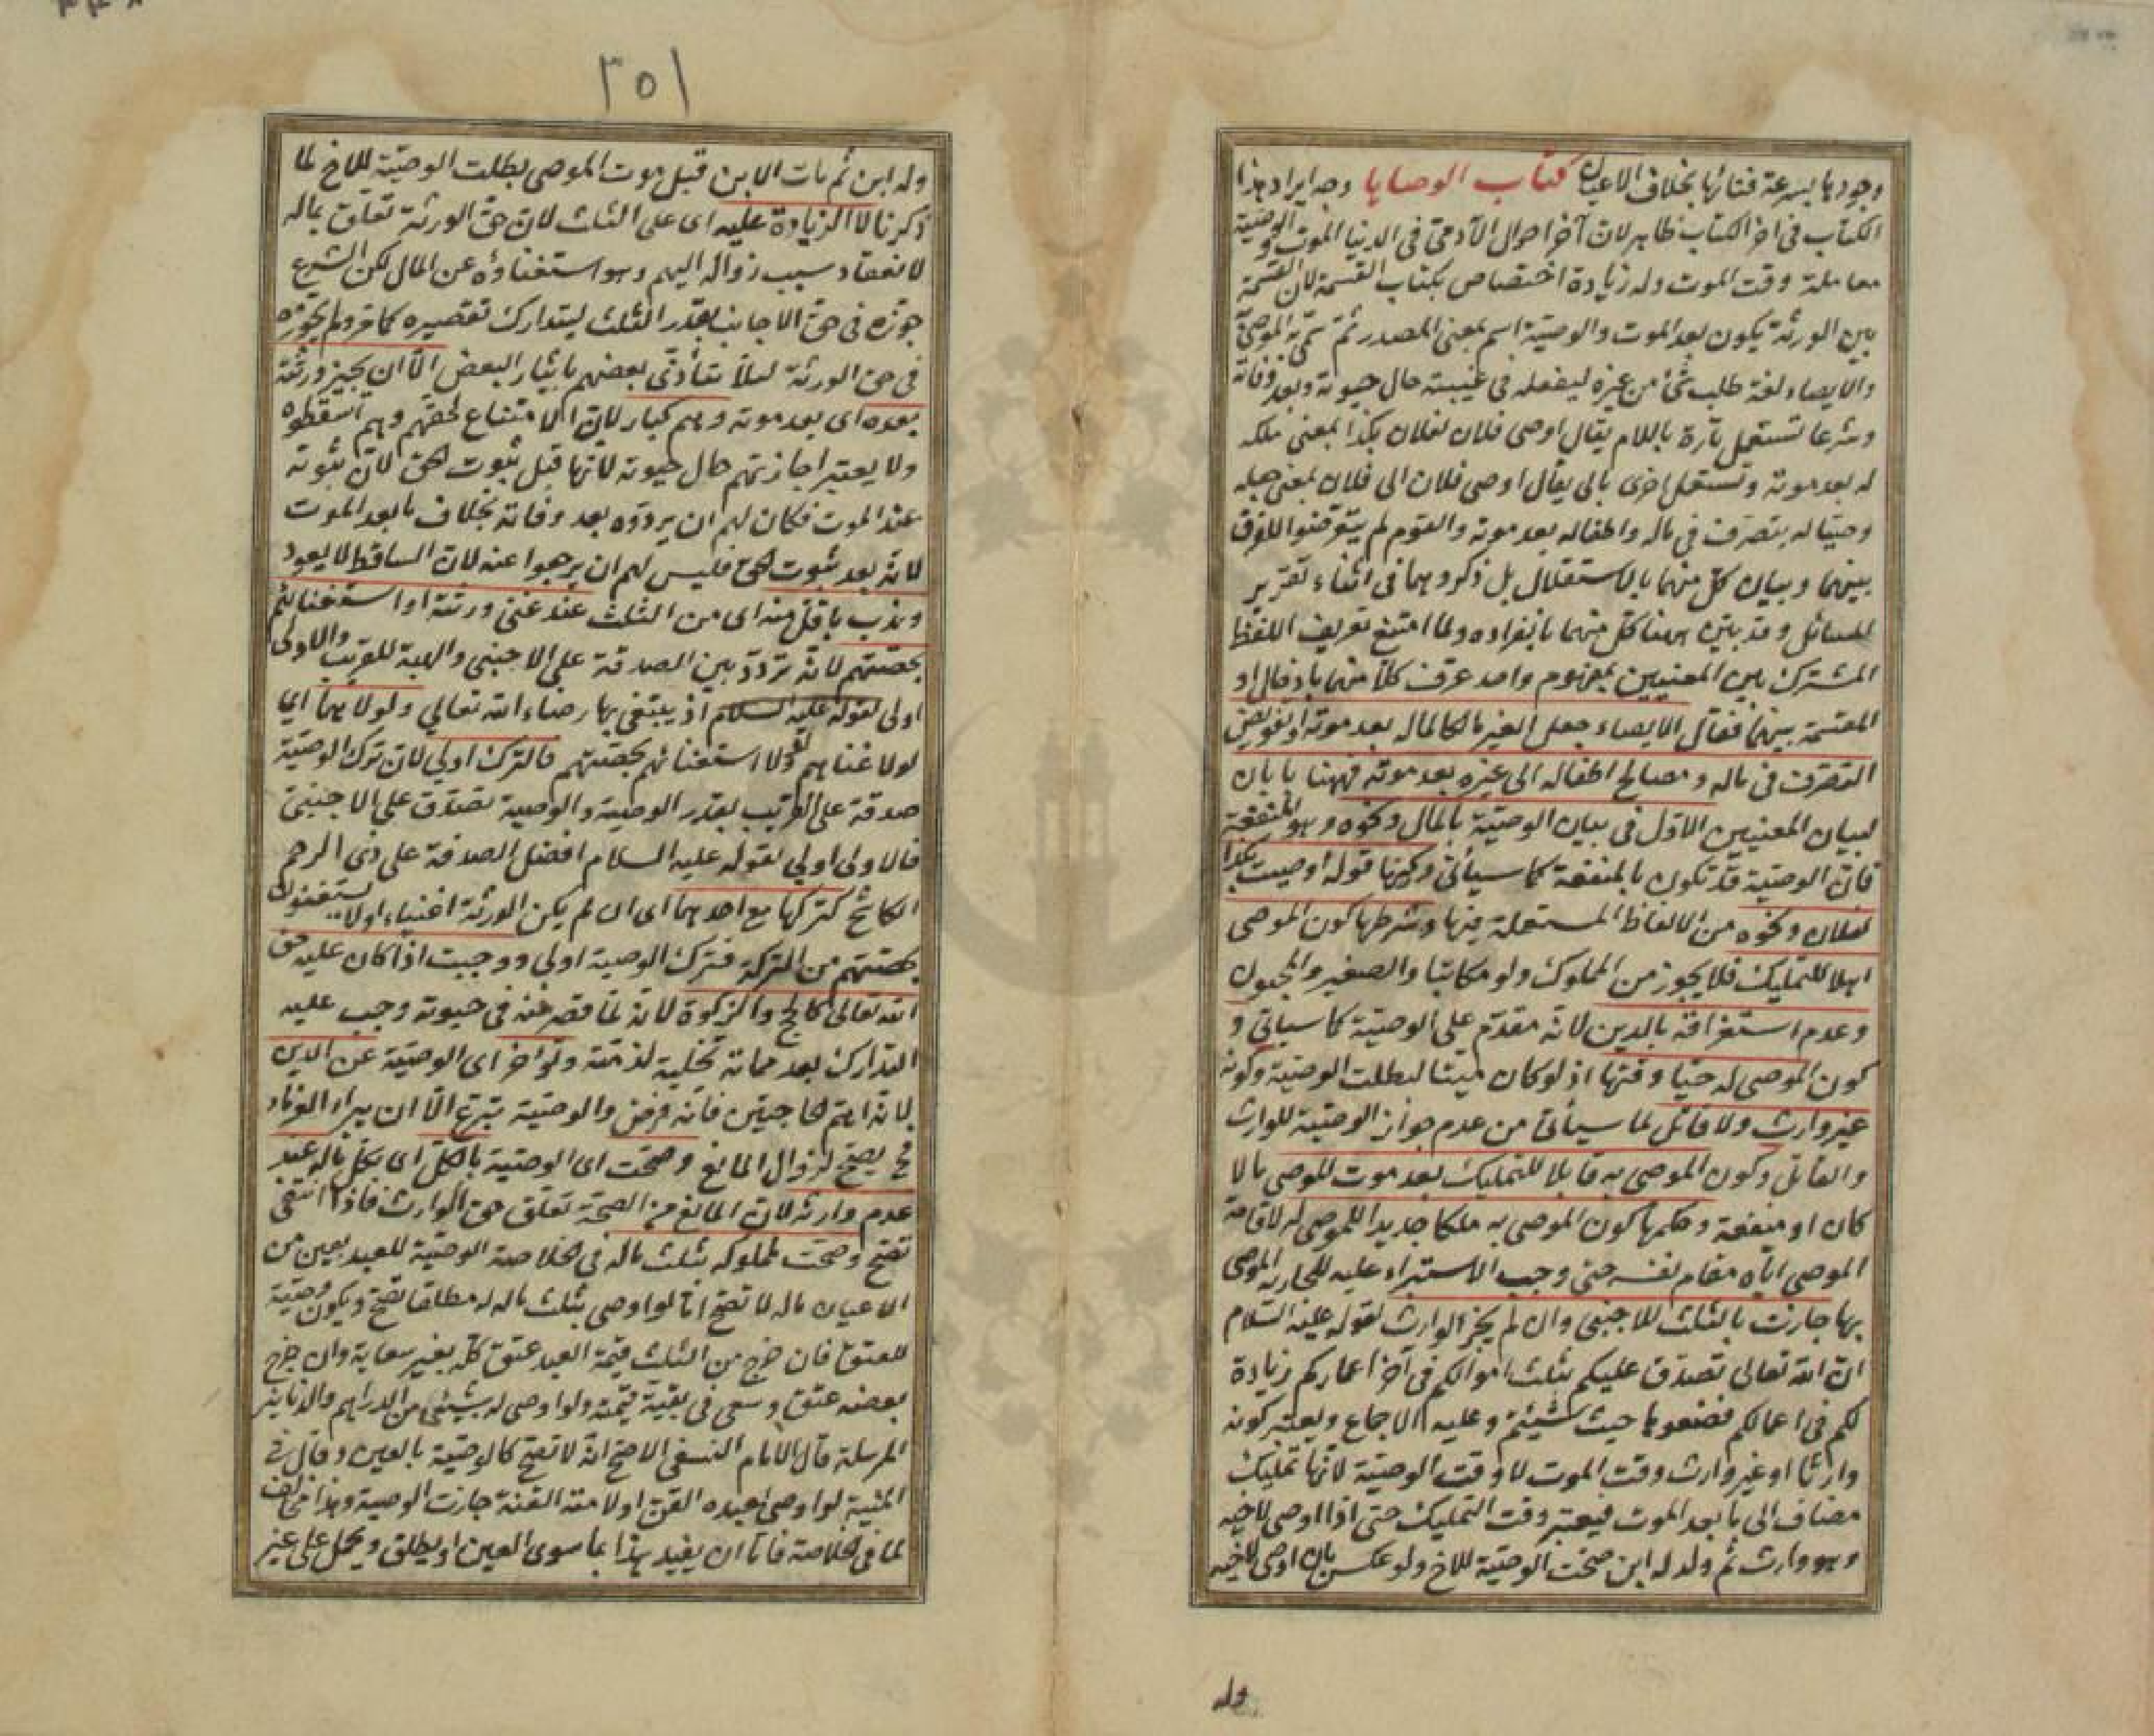 وجودها بسرعة فنائها بخلاف الاعيان كتاب الوصايا وجه ايراد هذا
الكتاب فى اخر الكتاب ظاهر لان آخر احوال الآدمى فى الدنيا الموت والوصية
معاملة وقت الموت وله زيادة اختصاص بكتاب القسمة لان القسمة
بين الورثة يكون بعد الموت والوصية اسم بمعنى المصدر ثم سمى به الموصى به
والايصاء لغة طلب شئ من غيره ليفعله فى غيبته حال حيوته وبعد وفاته
وشرعا تستعمل تارة باللام يقال اوصى فلان لفلان بكذا بمعنى ملكه
له بعد موته وتستعمل اخرى بالى يقال اوصى فلان الى فلان بمعنى جعله
وصيا له يتصرف فى ماله واطفاله بعد موته والقوم لم يتعرضوا للفرق
بينهما وبيان كل منهما بالاستقلال بل ذكروهما فى اثناء تقرير
المسائل وقد بين ههنا كل منهما بانفراده ولما امتنع تعريف اللفظ
المشترك بين المعنيين بمفهوم واحد عرف كلا منهما بادخال او
المقسمة بينهما فقال الايصاء جعل الغير مالكا لماله بعد موته او تفويض
التصرف فى ماله ومصالح اطفاله الى غيره بعد موته فههنا بابان
لبيان المعنيين الاول فى بيان الوصية بالمال ونحوه وهو المنفعة
فان الوصية قد تكون بالمنفعة كما سيأتى وركنها قوله اوصيت بكذا
لفلان ونحوه من الالفاظ المستعملة فيها وشرطها كون الموصى
اهلا للتمليك فلا يجوز من المملوك ولو مكاتبا والصغير والمجنون
وعدم استغراقه بالدين لانه مقدم على الوصية كما سيأتى و
كون الموصى له حيا وقتها اذ لو كان ميتا لبطلت الوصية وكونه
غير وارث ولا قاتل لما سيأتى من عدم جواز الوصية للوارث
والقاتل وكون الموصى به قابلا للتمليك بعد موت الموصى مالا
كان او منفعة وحكمها كون الموصى به ملكا جديدا للموصى له لاقامة
الموصى اياه مقام نفسه حتى وجب الاستبراء عليه للجارية الموصى
بها جازت بالثلث للاجنبى وان لم يجز الوارث لقوله عليه السلام
ان الله تعالى تصدق عليكم بثلث اموالكم فى آخر اعماركم زيادة
لكم فى اعمالكم فضعوها حيث شئتم وعليه الاجماع ويعتبر كونه
وارثا او غير وارث وقت الموت لا وقت الوصية لانها تمليك
مضاف الى ما بعد الموت فيعتبر وقت التمليك حتى اذا اوصى لاخيه
وهو وارث ثم ولد له ابن صحت الوصية للاخ ولو عكس بان اوصى لاخيه
وله
٣٥١
وله ابن ثم مات الابن قبل موت الموصى بطلت الوصية للاخ لما
ذكرنا لا الزيادة عليه اى على الثلث لان حق الورثة تعلق بماله
لانعقاد سبب زواله اليهم وهو استغناؤه عن المال لكن الشرع
جوزه فى حق الاجانب بقدر الثلث ليتدارك تقصيره كما مر ولم يجوزه
فى حق الورثة لئلا يتأذى بعضهم بايثار البعض الا ان يجيز ورثته
بعده اى بعد موته وهم كبار لان الامتناع لحقهم وهم اسقطوه
ولا يعتبر اجازتهم حال حيوته لانها قبل ثبوت الحق لان ثبوته
عند الموت فكان لهم ان يردوه بعد وفاته بخلاف ما بعد الموت
لانه بعد ثبوت الحق فليس لهم ان يرجعوا عنه لان الساقط لا يعود
وندب باقل منه اى من الثلث عند غنى ورثته او استغنائهم
بحصتهم لانه تردد بين الصدقة على الاجنبى والهبة للقريب والاولى
اولى لقوله عليه السلام اذ يبتغى بها رضاء الله تعالى ولولاهما اى
لولا غناهم ولا استغنائهم بحصتهم فالترك اولى لان ترك الوصية
صدقة على القريب بقدر الوصية والوصية تصدق على الاجنبى
فالاولى اولى لقوله عليه السلام افضل الصدقة على ذى الرحم
الكاشح كتركها مع احدهما اى ان لم يكن الورثة اغنياء او لا يستغنون
بحصتهم من التركة فترك الوصية اولى ووجبت اذا كان عليه حق
الله تعالى كالحج والزكوة لانه لما قصر عنه فى حيوته وجب عليه
التدارك بعد مماته تخلية لذمته وتؤخر اى الوصية عن الدين
لانه اهم الحاجتين فانه فرض والوصية تبرع الا ان يبراء الغرماء
فح يصح لزوال المانع وصحت اى الوصية بالكل اى بكل ماله عند
عدم وارثه لان المانع من الصحة تعلق حق الوارث فاذا انتفى
تصح وصحت لمملوكه بثلث ماله فى الخلاصة الوصية للعبد بعين من
الاعيان ماله لا تصح اما لو اوصى بثلث ماله له مطلقا تصح ويكون وصية
للعتق فان خرج من الثلث قيمة العبد عتق كله بغير سعاية وان خرج
بعضه عتق وسعى فى بقية قيمته ولو اوصى له بشئ من الدراهم والدنانير
المرسلة قال الامام النسفى الاصح انه لا تصح كالوصية بالعين وقال فى
المنية لو اوصى لعبده القن او لامته القنة جازت الوصية وهذا مخالف
لما فى الخلاصة فاما ان يقيد هذا بما سوى العين او يطلق ويحمل على غير